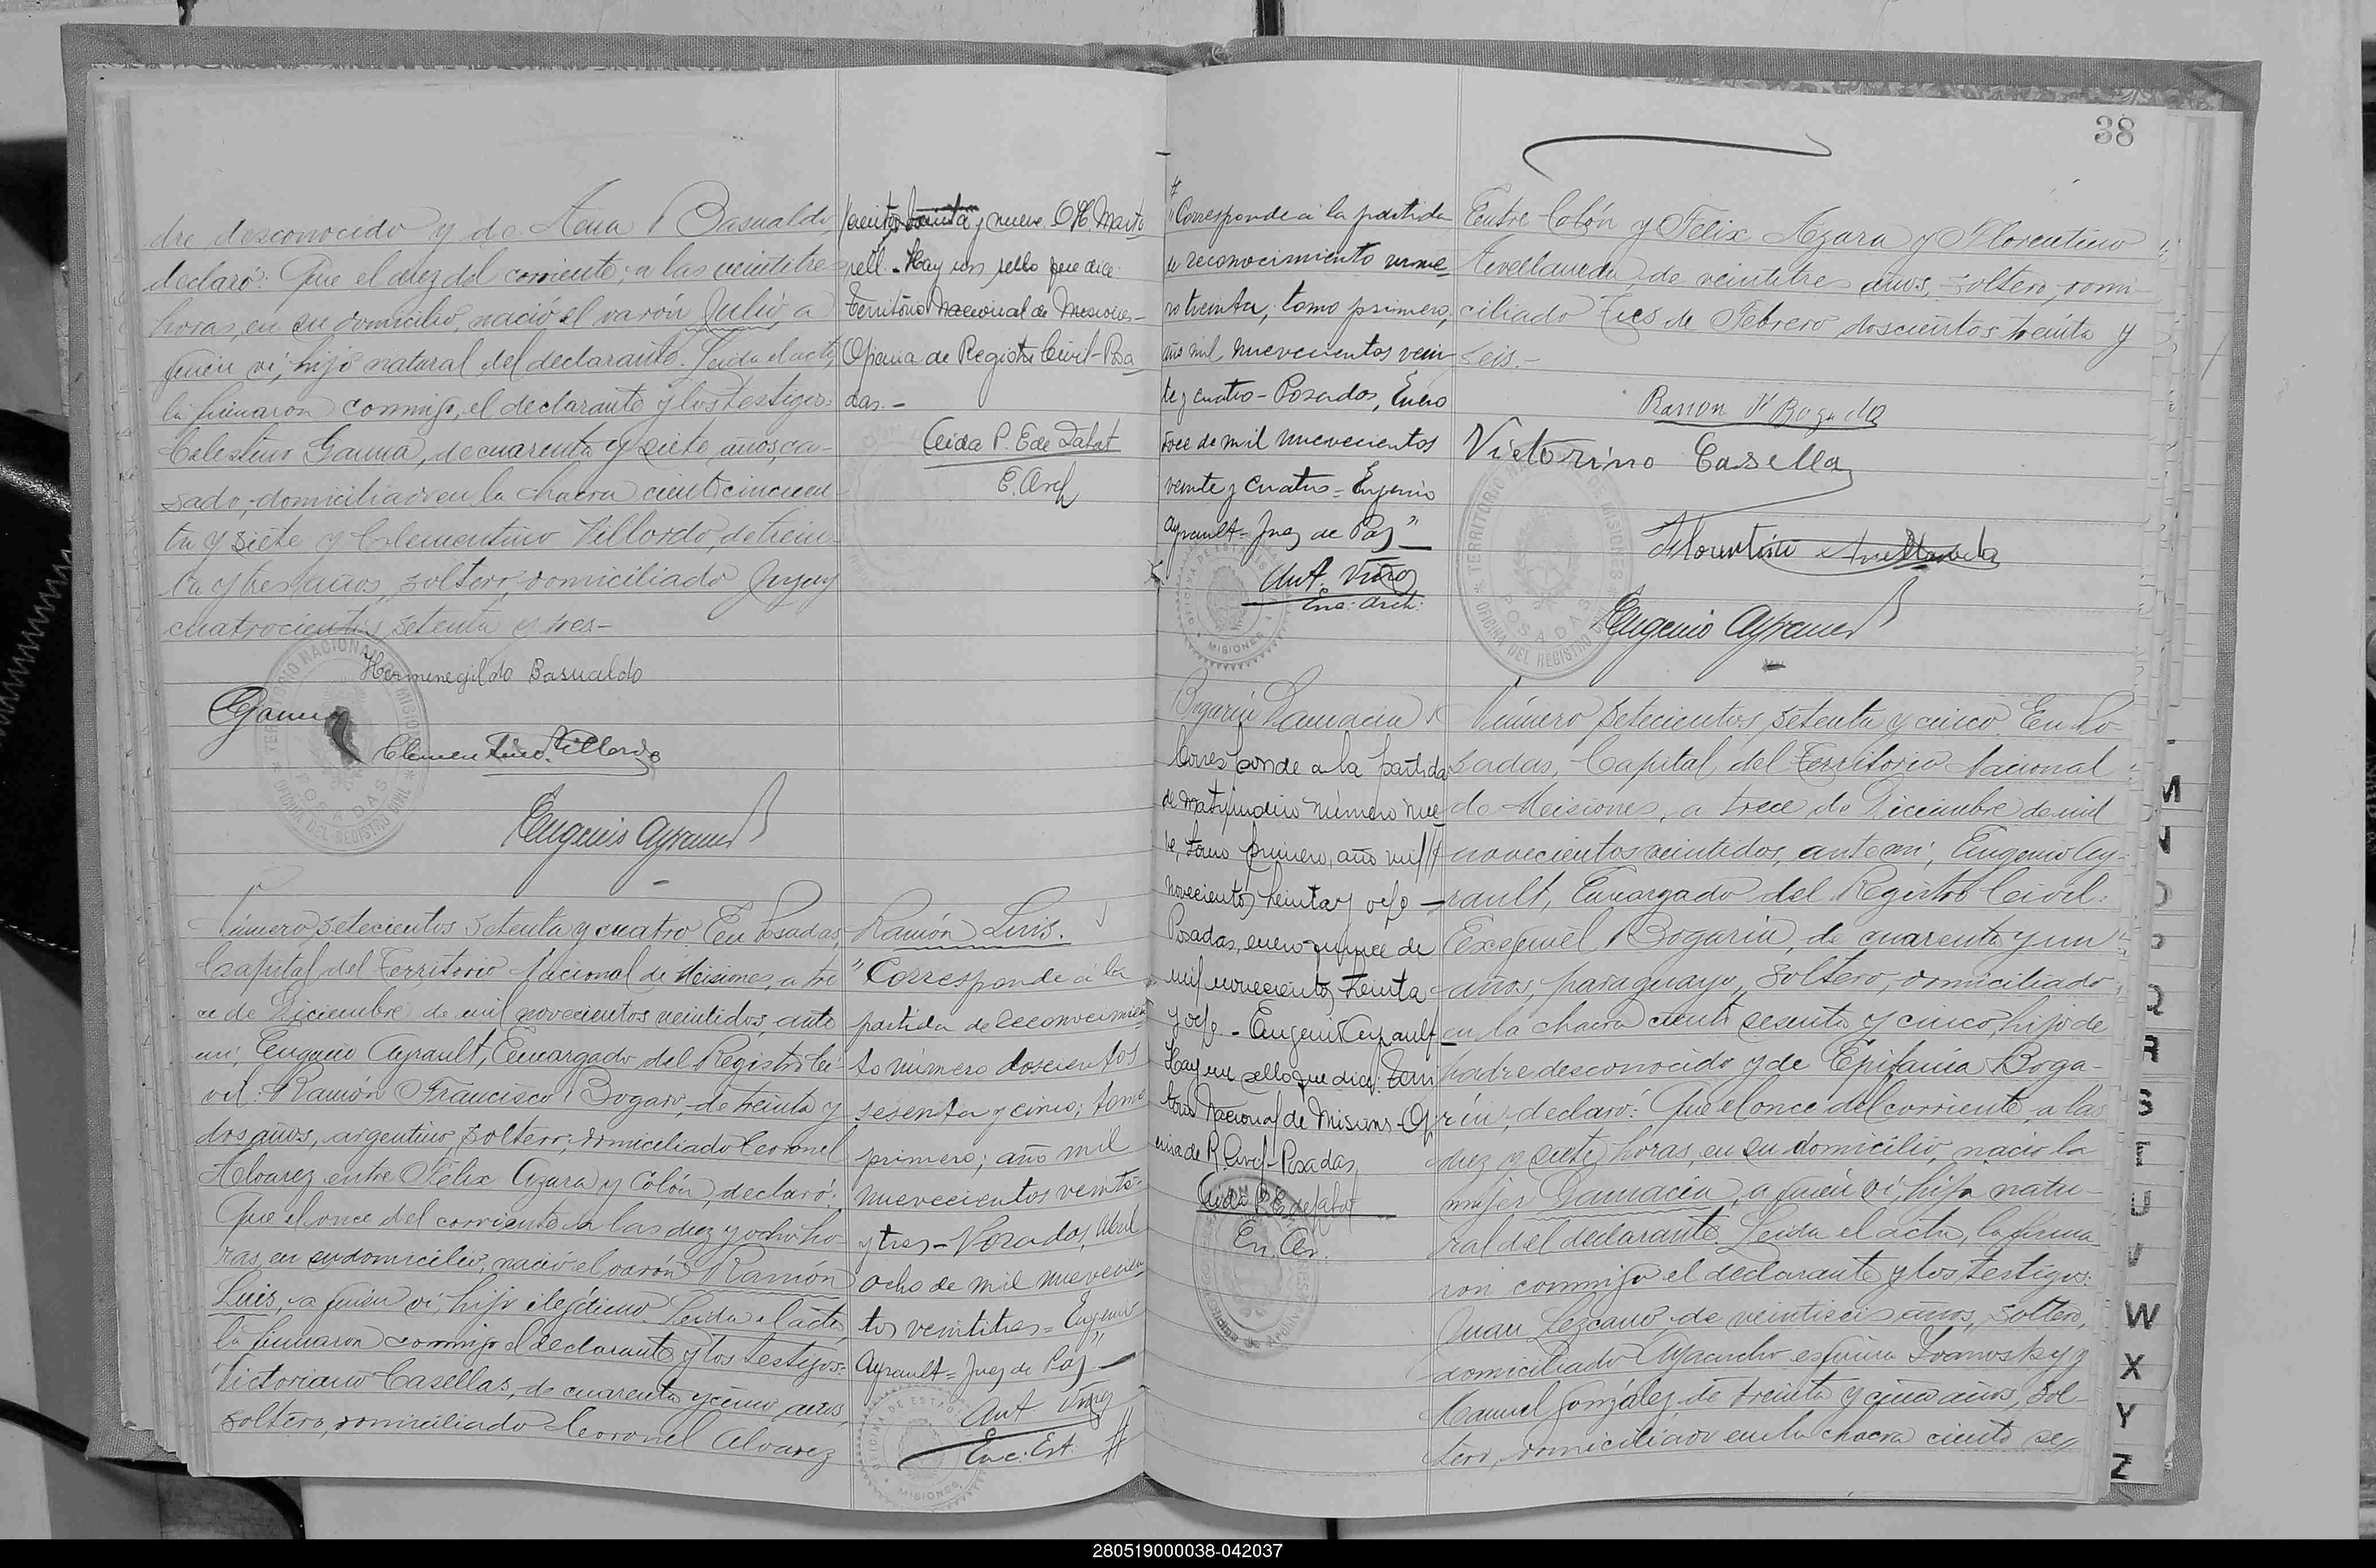 dre desconocido y de Ana Basualdo,
declaró: Que el diez del corriente, a las veintitres
horas, en su domicilio, nació el varón Julio, a
quien ví, hijo natural del declarante. Leida el acta,
la firmaron conmigo, el declarante y los testigos:
Celestino Gauna, de cuarenta y siete años, ca-
sado, domiciliado en la chacra ciento cincuen-
ta y siete y Clementino Villordo, de trein-
ta y tres años, soltero, domiciliado Jujuy
cuatrocientos setenta y tres-
Hermenegildo Basualdo
CGauna
Clementino Villordo
Eugenio Ayrault
TERRITORIO NACIONAL DE MISIONES
POSADAS
OFICINA DEL REGISTRO CIVIL
y nueve
Hay un sello que dice:
Territorio Nacional de Misiones-
Oficina de Registro Civil-Posa
das.-
E. Arch
Número setecientos setenta y cuatro. En Posadas,
Capital del Territorio Nacional de Misiones, a tre
ce de Diciembre de mil novecientos veintidos, ante
mí, Eugenio Ayrault, Encargado del Registro Ci-
vil: Ramón Francisco Bogado, de treinta y
dos años, argentino, soltero, domiciliado Coronel
Alvarez entre Félix Azara y Colón, declaró:
Que el once del corriente a las diez y ocho ho
ras, en su domicilio, nació el varón Ramón
Luis, a quien ví, hijo ilegítimo. Leida el acta,
la firmaron conmigo el declarante y los testigos:
Victoriano Casellas, de cuarenta y cinco años,
soltero, domiciliado Coronel Alvarez
Ramón Luis.
"Corresponde á la
partida de reconocimien
to número doscientos
sesenta y cinco; tomo
primero; año mil
nuevecientos veinte
y tres- Posadas, Abril
ocho de mil nuevecien
tos veintitres= Eugenio
Ayrault= Juez de Paz"-
Enc. Est. #
OFICINA DE ESTAD
MISIONES
38
#
"Corresponde á la partida
de reconocimiento nume
ro treinta; tomo primero;
año mil nuevecientos vein
te y cuatro- Posadas, Enero
doce de mil nuevecientos
veinte y cuatro= Eugenio
Ayrault= Juez de Paz"-
Enc. Arch:
MISIONES
Entre Colón y Felix Azara y Florentino
Avellaneda, de veintitres años, soltero, domi-
ciliado Tres de Febrero doscientos treinta y
seis.-
Ramon F Bogado
Victorino Casella
Florentino Avellaneda
Eugenio Ayrault
TERRITORIO NACIONAL DE MISIONES
POSADAS
OFICINA DEL REGISTRO CIVIL
Bogarín Damacia
Corresponde a la partida
de matrimonio número nue
ve, tomo primero, año mil
novecientos treinta y ocho-
Posadas, enero quince de
mil novecientos treinta
y ocho.- Eugenio Ayrault-
Hay un sello que dice: Terri
torio Nacional de Misiones-Ofi
cina de R. Civil-Posadas.
En. Ar.
Número setecientos setenta y cinco. En Po-
sadas, Capital del Territorio Nacional
de Misiones, a trece de Diciembre de mil
novecientos veintidos, ante mí, Eugenio Ay-
rault, Encargado del Registro Civil:
Exequiel Bogarín, de cuarenta y un
años, paraguayo, soltero, domiciliado
en la chacra ciento sesenta y cinco, hijo de
padre desconocido y de Epifania Boga-
rín, declaró: Que el once del corriente, a las
diez y siete horas, en su domicilio, nació la
mujer Damacia, a quién ví, hija natu-
ral del declarante. Leida el acta, la firma-
ron conmigo el declarante y los testigos:
Juan Lezcano, de veintiseis años, soltero,
domiciliado Ayacucho esquina Ivanosky y
Manuel González, de treinta y cinco años, sol-
tero, domiciliado en la chacra ciento se
M
N
O
P
Q
R
S
T
U
V
W
X
Y
Z
280519000038-042037